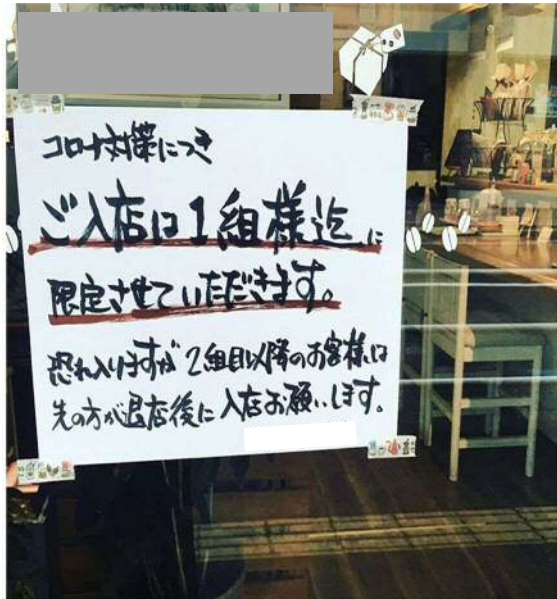 コロナ対策につき
ご入店は1組様迄に
限定させていただきます。
恐れ入りますが2組目以降のお客様は
先の方が退店後に入店お願いします。